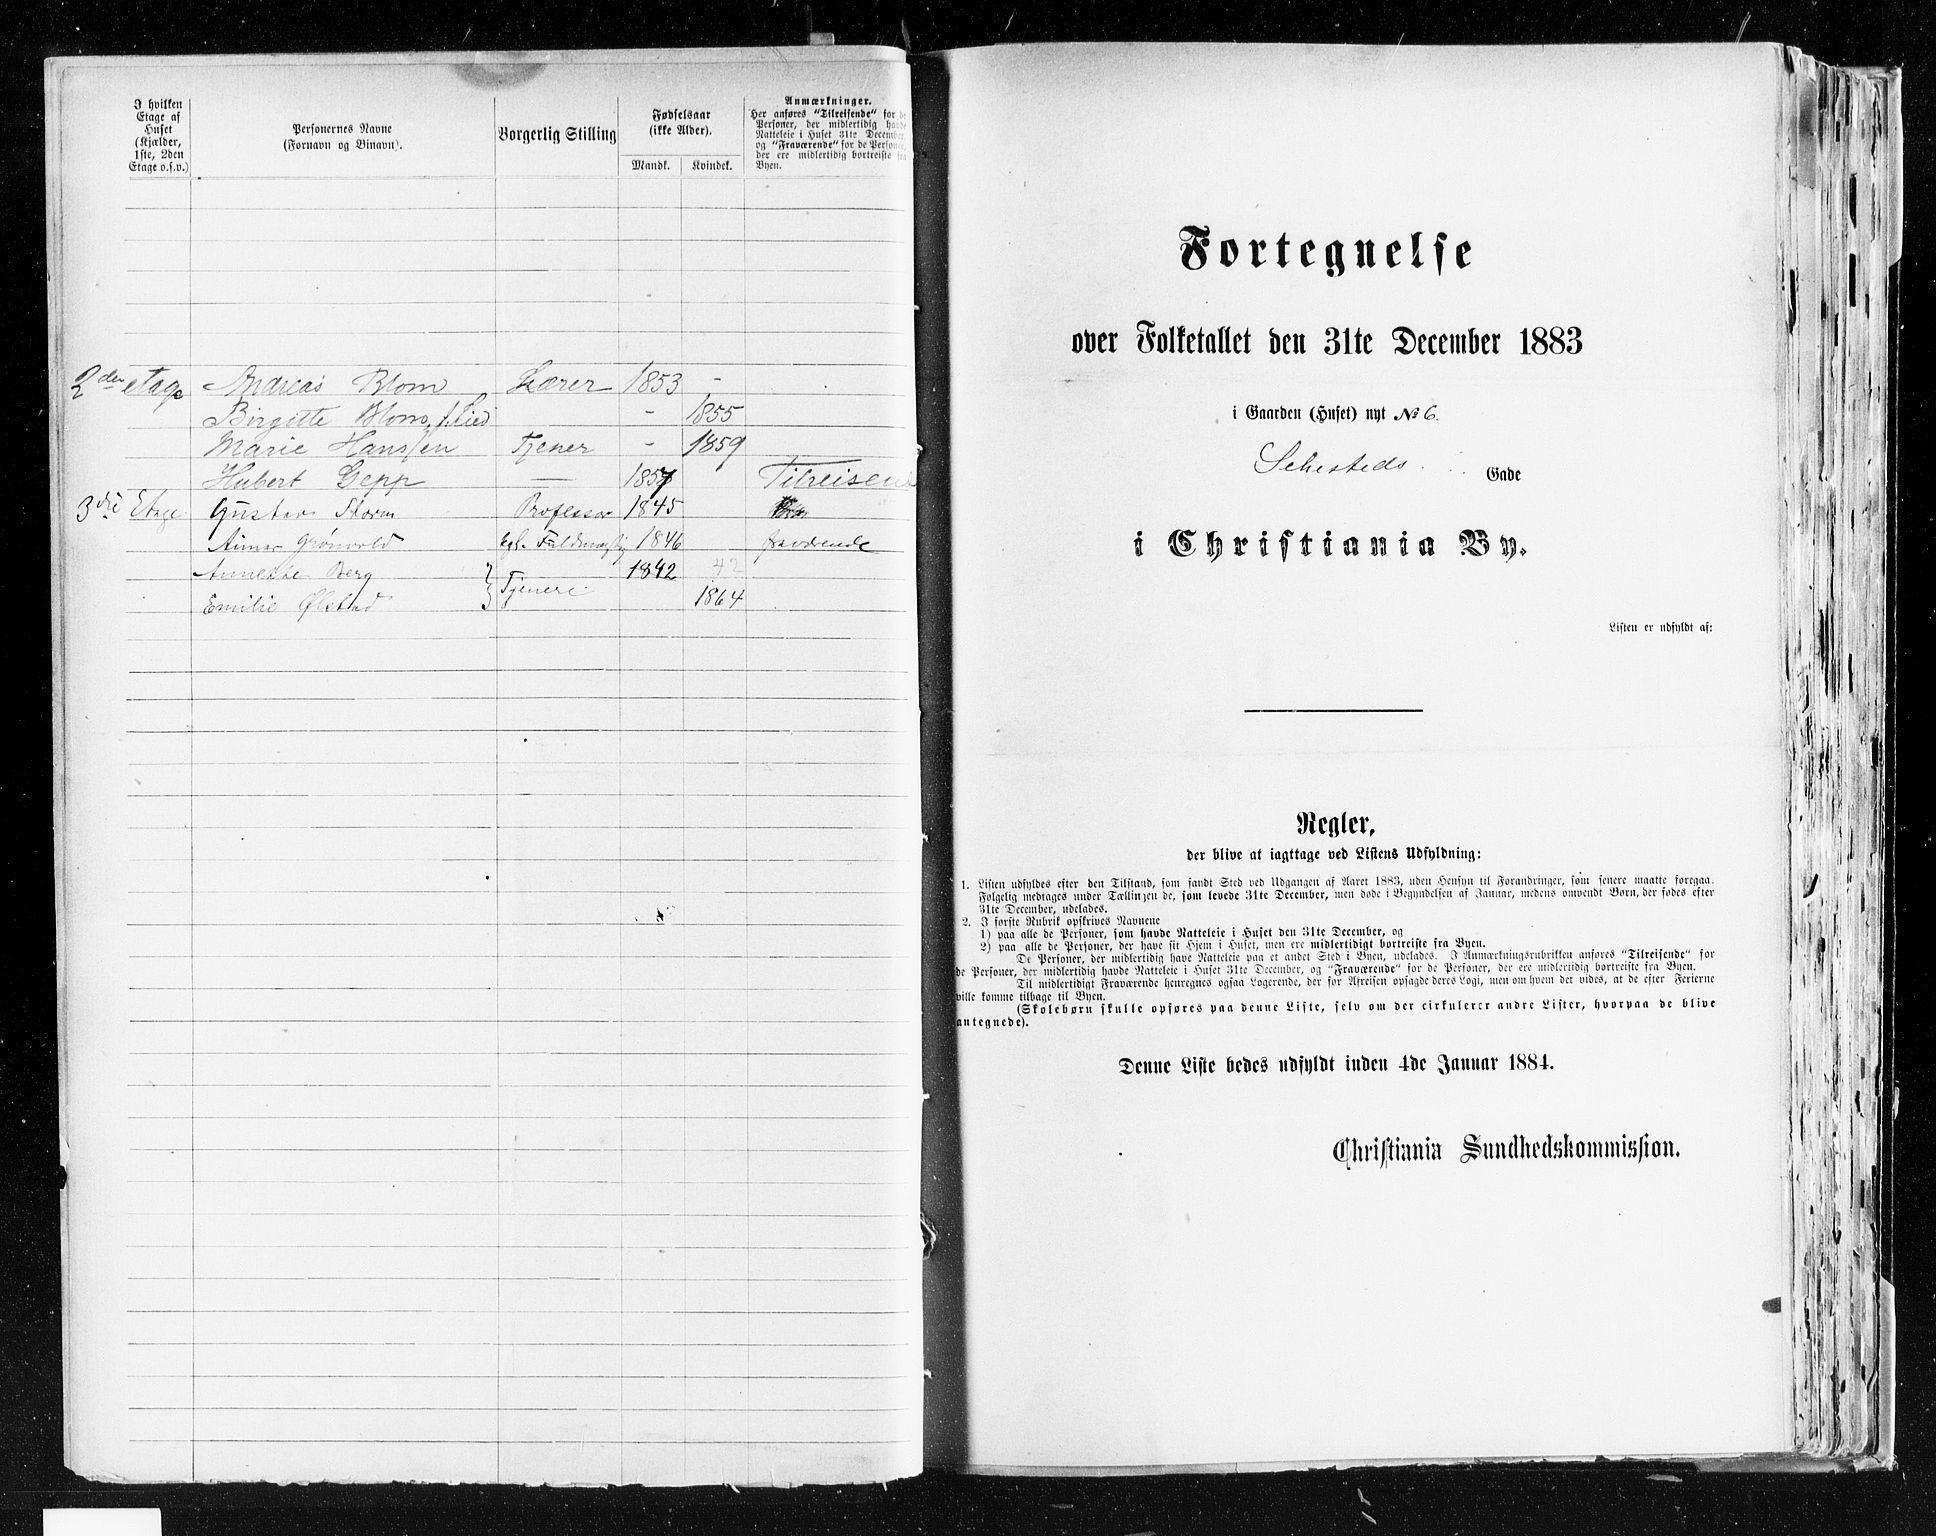 I hvilken
Etage af
Huset
(Kjælder,
1ste, 2den
Etage o.s.v.)
Personernes Navne
(Fornavn og Binavn).
Borgerlig Stilling
Fødselsaar
(ikke Alder).
Mandk. Kvindek.
Anmærkninger.
Her anføres "Tilreisende" for de
Personer, der midlertidig havde
Natteleie i Huset 31te December,
og "Fraværende" for de Personer,
der ere midlertidig bortreiste fra
Byen.
2den etage Andreas Blom Lærer 1853 -
Birgitte Blom, f. Lied - 1855
Marie Hanssen Tjener - 1859
Hubert Gepp — 1857 Tilreisende
3die Etage Gustav Storm Professor 1845
Grönvold 1846 fraværende
Annette Berg 1842 42
Tjenere
Emilie Ølstad 1864
Fortegnelse
over Folketallet den 31te December 1883
i Gaarden (Huset) nyt No 6.
Sehesteds Gade
i Christiania By.
Listen er udfyldt af:
Regler,
der blive at iagttage ved Listens Udfyldning:
1. Listen udfyldes efter den Tilstand, som fandt Sted ved Udgangen af Aaret 1883, uden Hensyn til Forandringer, som senere maatte foregaa.
Følgelig medtages under Tællingen de, som levede 31te December, men døde i Begyndelsen af Januar, medens omvendt Børn, der fødes efter
31te December, udelades.
2. I første Rubrik opskrives Navnene
1) paa alle de Personer, som havde Natteleie i Huset den 31te December, og
2) paa alle de Personer, der have sit Hjem i Huset, men ere midlertidigt bortreiste fra Byen.
De Personer, der midlertidig have Natteleie paa et andet Sted i Byen, udelades. I Anmærkningsrubrikken anføres "Tilreisende" for
de Personer, der midlertidig havde Natteleie i Huset 31te December, og "Fraværende" for de Personer, der ere midlertidig bortreiste fra Byen.
Til midlertidigt Fraværende henregnes ogsaa Logerende, der før Afreisen opsagde deres Logi, men om hvem det vides, at de efter Ferierne
ville komme tilbage til Byen.
(Skolebørn skulle opføres paa denne Liste, selv om der cirkulerer andre Lister, hvorpaa de blive
antegnede).
Denne Liste bedes udfyldt inden 4de Januar 1884.
Christiania Sundhedskommission.